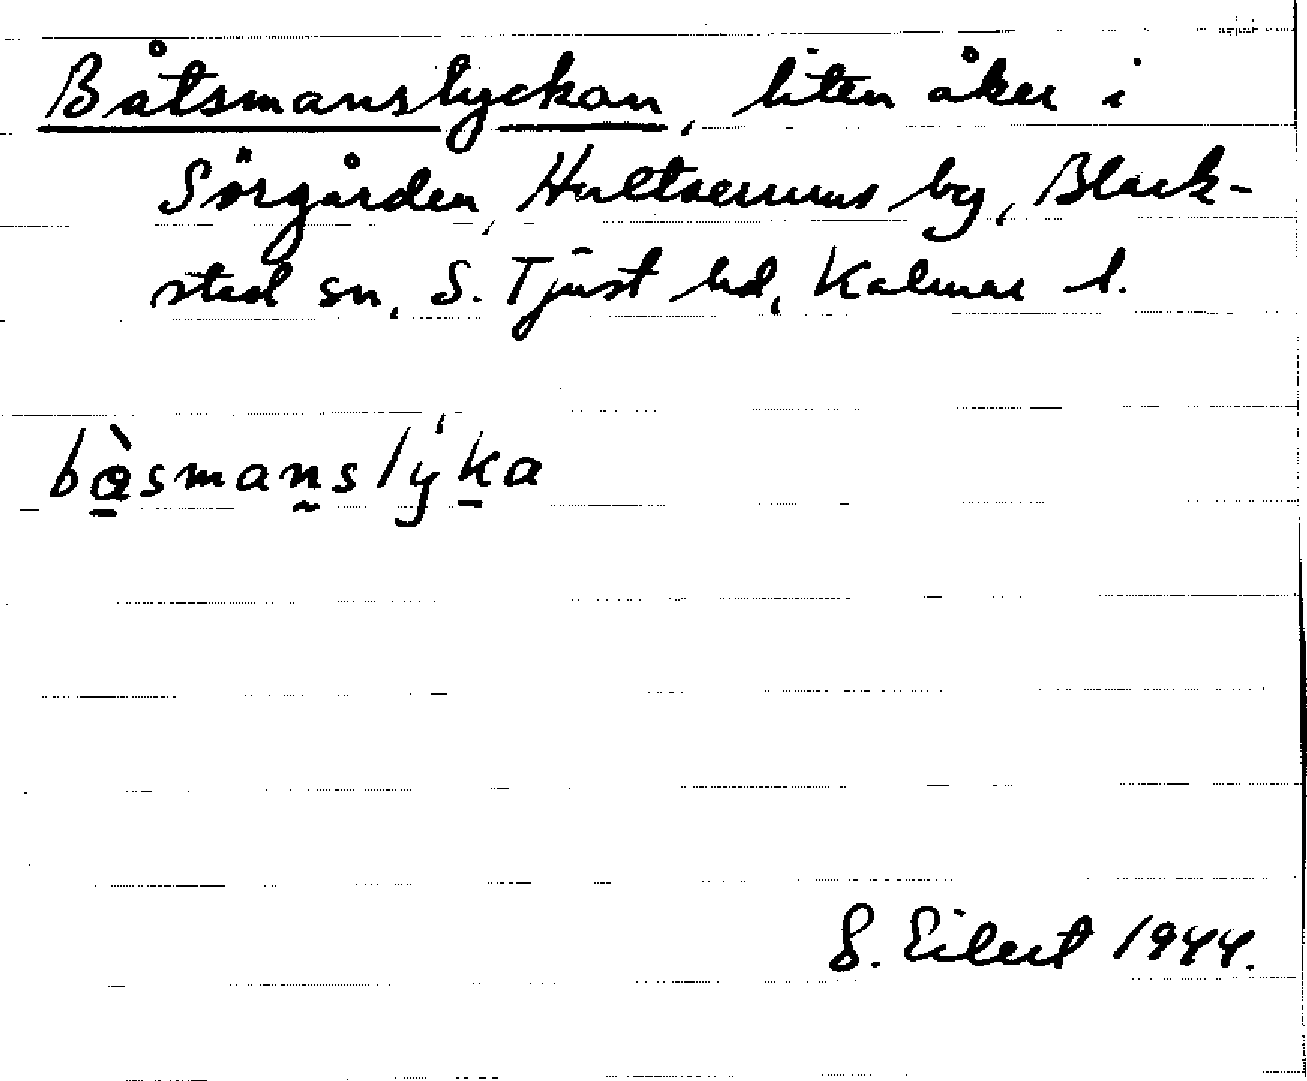 Båtsmanslyckan, liten åker i
Sörgården, Hultserums by, Black-
stad sn, S. Tjust hd, Kalmar l.
bàsmanslýka
S. Eilert 1944.